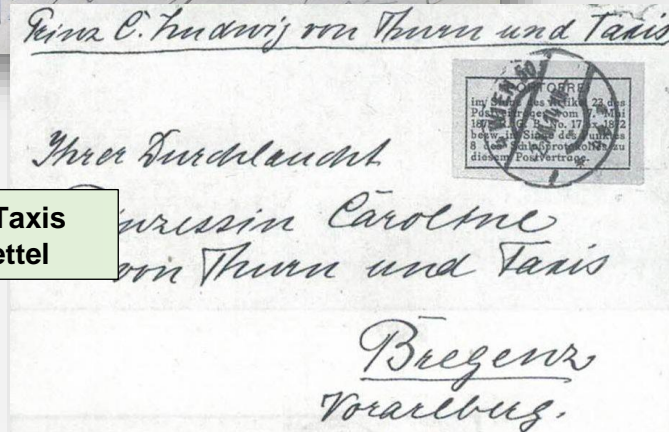 Prinz C. Ludwig von Thurn und Taxis
PORTOFREI
im Sinne des Artikel 23 des
Postvertrages vom 7. Mai
1872 R. G. B. No. 17 ex 1872
bezw. im Sinne des Punktes
8 des Schlußprotokolles zu
diesem Postvertrage.
WIEN
Ihrer Durchlaucht
Prinzessin Caroline
von Thurn und Taxis
Bregenz
Vorarlberg.
Taxis
ettel